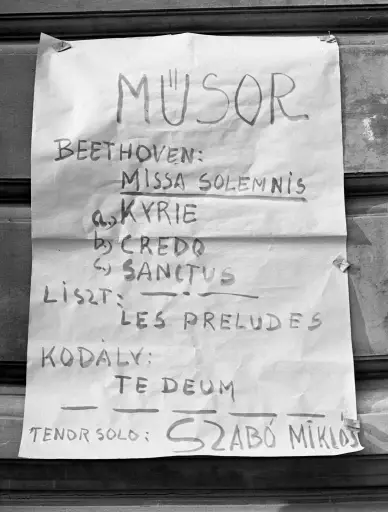 MŰSOR
BEETHOVEN:
MISSA SOLEMNIS
a., KYRIE
b., CREDO
c., SANCTUS
LISZT:
LES PRELUDES
KODÁLY:
TE DEUM
TENOR SOLO: SZABÓ MIKLÓS